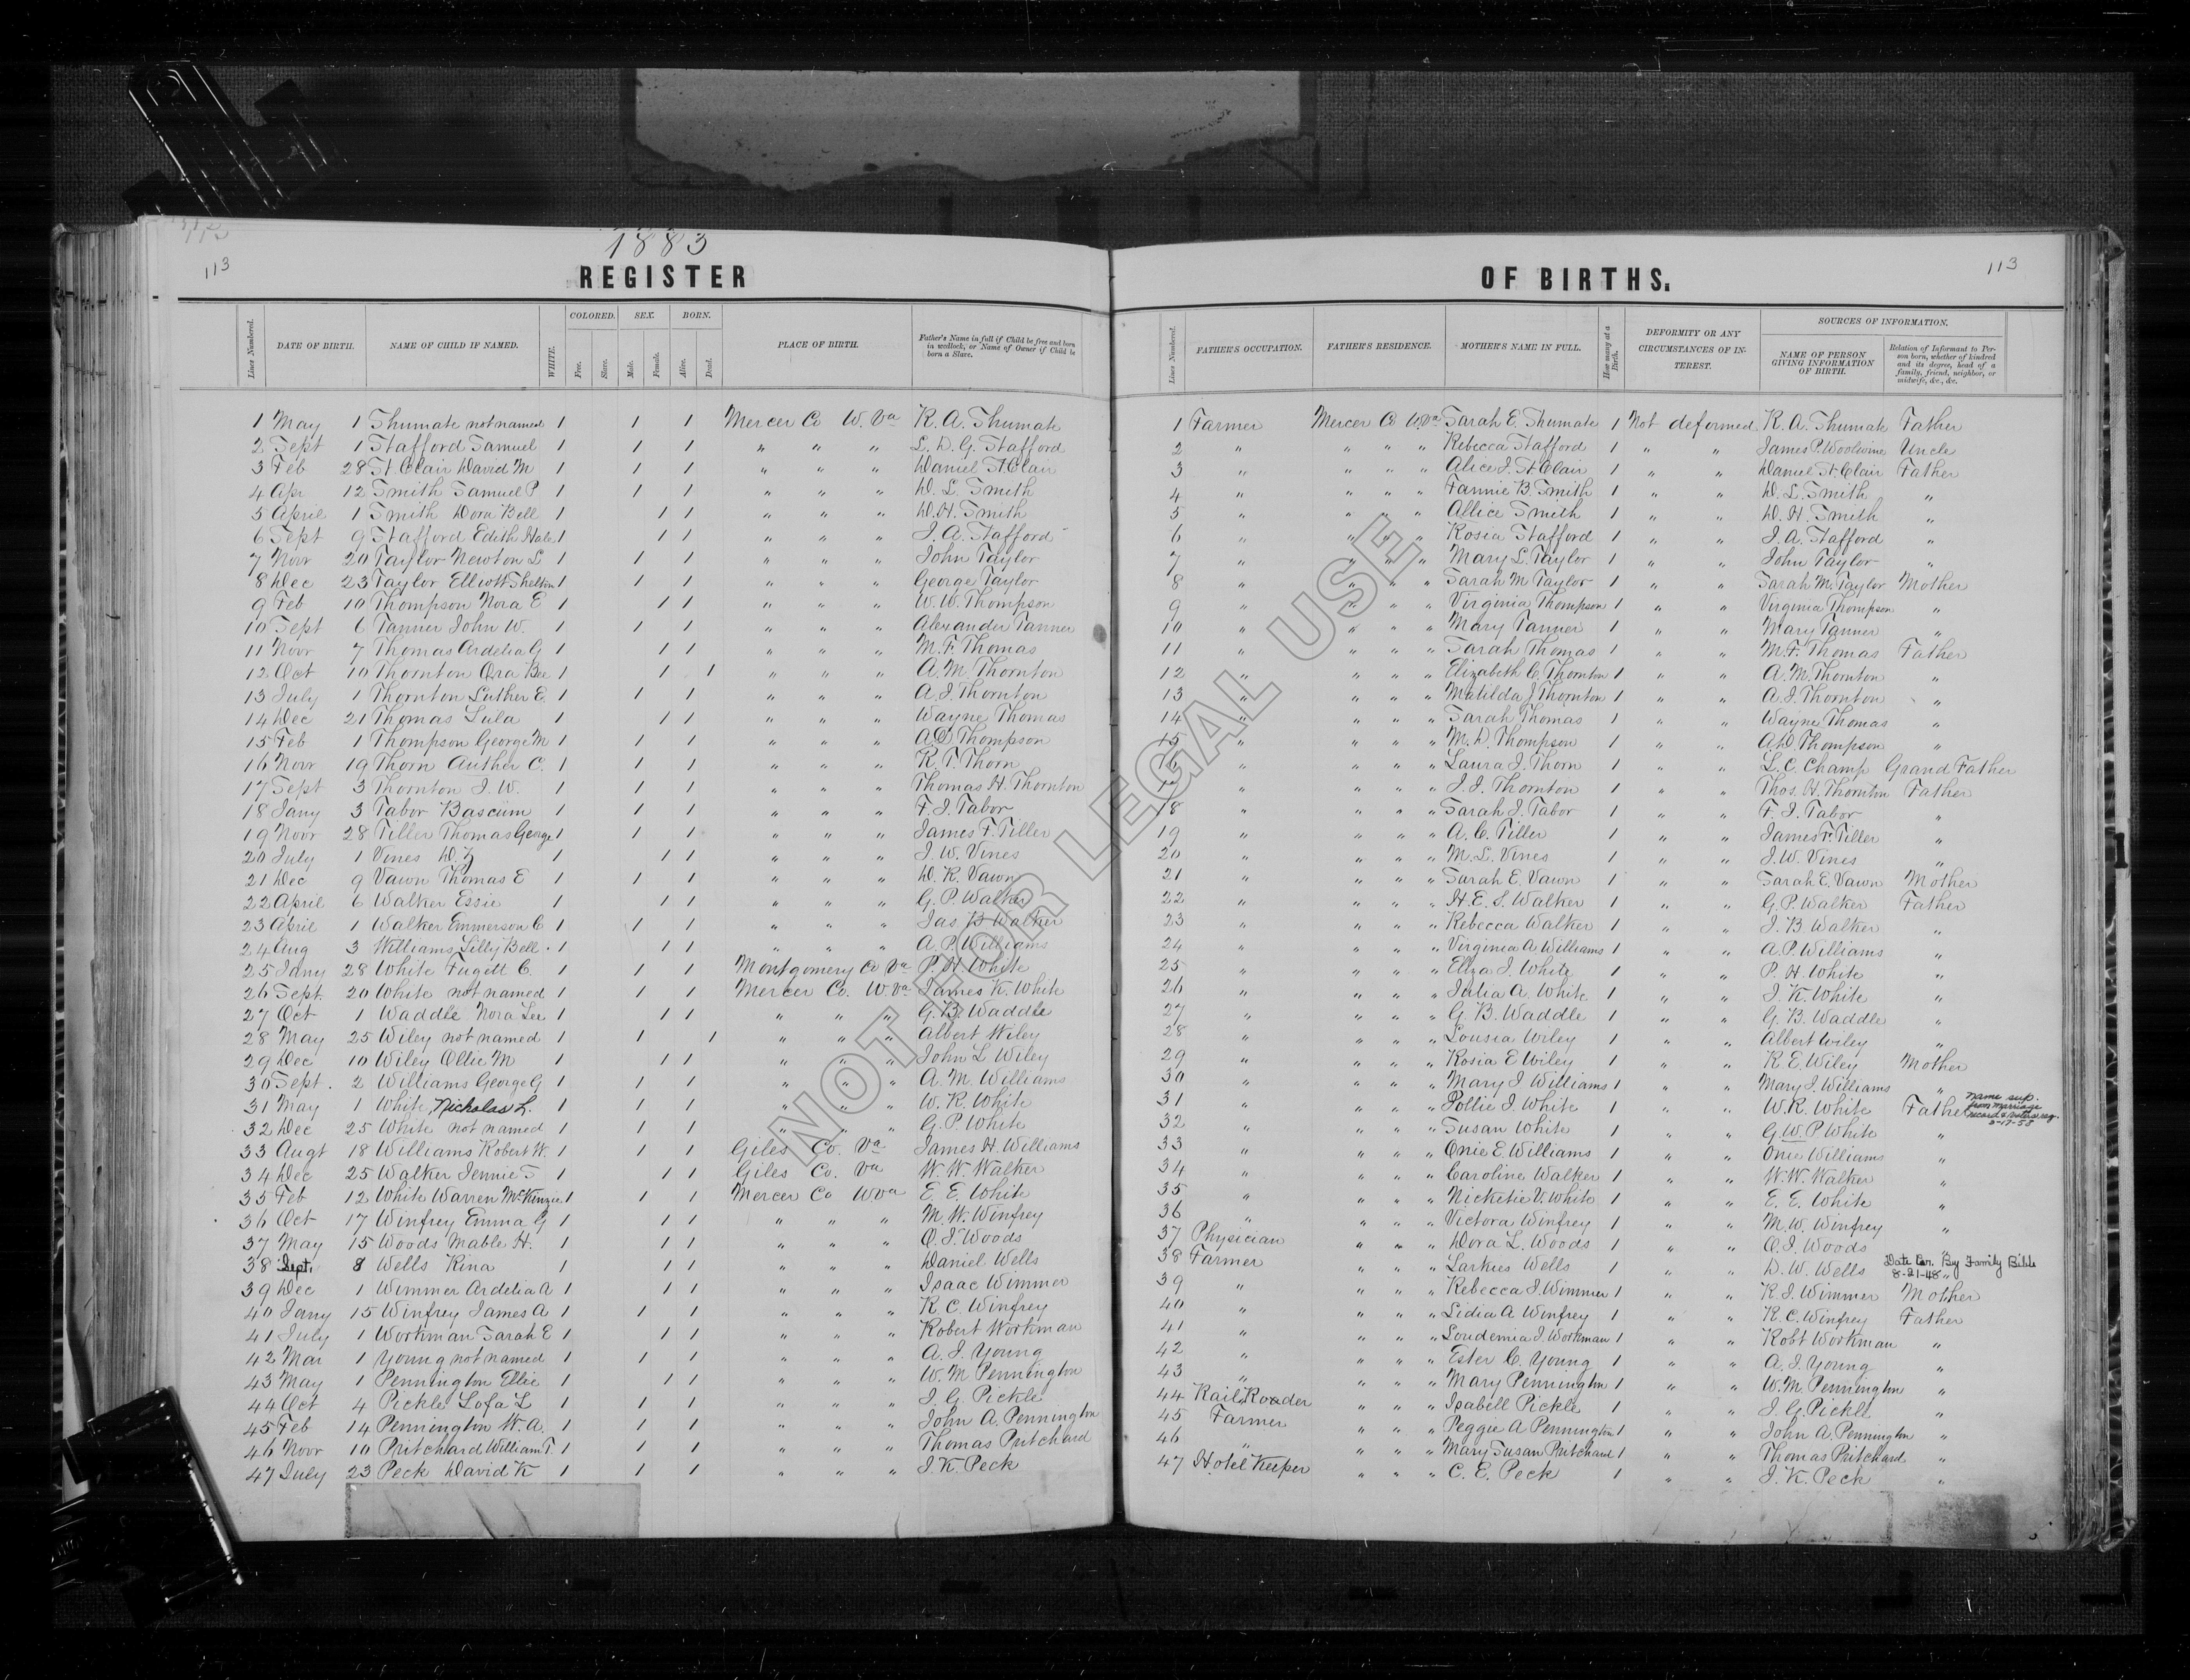 113
1883
113 113
REGISTER OF BIRTHS.
Lines Numbered. DATE OF BIRTH. NAME OF CHILD IF NAMED. WHITE. COLORED. Free. Slave. SEX. Male. Female. BORN. Alive. Dead. PLACE OF BIRTH. Father's Name in full if Child be free and born in wedlock, or Name of Owner if Child be born a Slave. Lines Numbered. FATHER'S OCCUPATION. FATHER'S RESIDENCE. MOTHER'S NAME IN FULL. How many at a Birth. DEFORMITY OR ANY CIRCUMSTANCES OF INTEREST. SOURCES OF INFORMATION. NAME OF PERSON GIVING INFORMATION OF BIRTH. Relation of Informant to Person born, whether of kindred and its degree, head of a family, friend, neighbor, or midwife, &c., &c.
1 May 1 Shumate not named 1 1 1 Mercer Co W. Va R. A. Shumate 1 Farmer Mercer Co W.Va Sarah E. Shumate 1 Not deformed R. A. Shumate Father
2 Sept 1 Stafford Samuel 1 1 1 " " " L. D. G. Stafford 2 " " " " Rebecca Stafford 1 " " James P. Woolwine Uncle
3 Feb 28 St Clair David M 1 1 1 " " " Daniel St Clair 3 " " " " Alice J. St Clair 1 " " Daniel St Clair Father
4 Apr 12 Smith Samuel P 1 1 1 " " " D. L. Smith 4 " " " " Fannie B. Smith 1 " " D. L. Smith "
5 April 1 Smith Dora Bell 1 1 1 " " " D. H. Smith 5 " " " " Allice Smith 1 " " D. H. Smith "
6 Sept 9 Stafford Edith Hale 1 1 1 " " " J. A. Stafford 6 " " " " Rosia Stafford 1 " " J. A. Stafford "
7 Novr 20 Taylor Newton L 1 1 1 " " " John Taylor 7 " " " " Mary L. Taylor 1 " " John Taylor "
8 Dec 23 Taylor Elliott Shelton 1 1 1 " " " George Taylor 8 " " " " Sarah M Taylor 1 " " Sarah M. Taylor Mother
9 Feb 10 Thompson Nora E 1 1 1 " " " W. W. Thompson 9 " " " " Virginia Thompson 1 " " Virginia Thompson "
10 Sept 6 Tanner John W. 1 1 1 " " " Alexander Tanner 10 " " " " Mary Tanner 1 " " Mary Tanner "
11 Novr 7 Thomas Ardelia G 1 1 1 " " " M. F. Thomas 11 " " " " Sarah Thomas 1 " " M. F. Thomas Father
12 Oct 10 Thornton Ora Bee 1 1 1 " " " A. M. Thornton 12 " " " " Elizabeth C. Thornton 1 " " A. M. Thornton "
13 July 1 Thornton Luther E. 1 1 1 " " " A. J. Thornton 13 " " " " Matilda J Thornton 1 " " A. J. Thornton "
14 Dec 21 Thomas Lula 1 1 1 " " " Wayne Thomas 14 " " " " Sarah Thomas 1 " " Wayne Thomas "
15 Feb 1 Thompson George M 1 1 1 " " " A D Thompson 15 " " " " M. D. Thompson 1 " " A. D. Thompson "
16 Novr 19 Thorn Auther C. 1 1 1 " " " R. T. Thorn 16 " " " " Laura J. Thorn 1 " " L. C. Champ Grand Father
17 Sept 3 Thornton J. W. 1 1 1 " " " Thomas H. Thornton 17 " " " " J. J. Thornton 1 " " Thos. H. Thornton Father
18 Jany 3 Tabor Bascum 1 1 1 " " " F. J. Tabor 18 " " " " Sarah J. Tabor 1 " " F. J. Tabor "
19 Novr 28 Tiller Thomas George 1 1 1 " " " James F. Tiller 19 " " " " A. C. Tiller 1 " " James F. Tiller "
20 July 1 Vines D. Z 1 1 1 " " " J. W. Vines 20 " " " " M. L. Vines 1 " " J. W. Vines "
21 Dec 9 Vawn Thomas E 1 1 1 " " " D. R. Vawn 21 " " " " Sarah E. Vawn 1 " " Sarah E. Vawn Mother
22 April 6 Walker Essie 1 1 1 " " " G. P. Walker 22 " " " " H. E. S. Walker 1 " " G. P. Walker Father
23 April 1 Walker Emmerson C 1 1 1 " " " Jas B Walker 23 " " " " Rebecca Walker 1 " " J. B Walker "
24 Aug 3 Williams Lilly Bell 1 1 1 " " " A. P. Williams 24 " " " " Virginia A. Williams 1 " " A. P. Williams "
25 Jany 28 White Fugett C. 1 1 1 Montgomery Co Va P. H. White 25 " " " " Eliza J. White 1 " " P. H. White "
26 Sept. 20 White not named 1 1 1 Mercer Co. W Va James K. White 26 " " " " Julia A. White 1 " " J. K. White "
27 Oct 1 Waddle Nora Lee 1 1 1 " " " G. B. Waddle 27 " " " " G. B. Waddle 1 " " G. B. Waddle "
28 May 25 Wiley not named 1 1 1 " " " Albert Wiley 28 " " " " Lousia Wiley 1 " " Albert Wiley "
29 Dec 10 Wiley Ollie M 1 1 1 " " " John L Wiley 29 " " " " Rosia E Wiley 1 " " R. E. Wiley Mother
30 Sept. 2 Williams George G 1 1 1 " " " A. M. Williams 30 " " " " Mary J Williams 1 " " Mary J. Williams "
31 May 1 White, Nicholas L. 1 1 1 " " " W. R. White 31 " " " " Pollie J. White 1 " " W. R. White Father Name sup. from marriage record & voters reg. 3-17-58
32 Dec 25 White not named 1 1 1 " " " G. P. White 32 " " " " Susan White 1 " " G. W. P White "
33 Augt 18 Williams Robert W. 1 1 1 Giles Co. Va James H. Williams 33 " " " " Onie E. Williams 1 " " Onie Williams "
34 Dec 25 Walker Jennie T 1 1 1 Giles Co. Va W. W. Walker 34 " " " " Caroline Walker 1 " " W. W. Walker "
35 Feb 12 White Warren McKinzie 1 1 1 Mercer Co W Va E. E. White 35 " " " " Nicketie V. White 1 " " E. E. White "
36 Oct 17 Winfrey Emma G 1 1 1 " " " M. W. Winfrey 36 " " " " Victora Winfrey 1 " " M. W. Winfrey "
37 May 15 Woods Mable H. 1 1 1 " " " O. J. Woods 37 Physician " " " Dora L. Woods 1 " " O. J. Woods "
38 Sept. 8 Wells Rina 1 1 1 " " " Daniel Wells 38 Farmer " " " Larkies Wells 1 " " D. W. Wells " Date Cor. By Family Bible 8-21-48
39 Dec 1 Wimmer Ardelia A 1 1 1 " " " Isaac Wimmer 39 " " " " Rebecca J. Wimmer 1 " " R. J. Wimmer Mother
40 Jany 15 Winfrey James A 1 1 1 " " " R. C. Winfrey 40 " " " " Lidia A Winfrey 1 " " R. C. Winfrey Father
41 July 1 Workman Sarah E 1 1 1 " " " Robert Workman 41 " " " " Loudemia J. Workman 1 " " Robt Workman "
42 Mar 1 Young not named 1 1 1 " " " A. J. Young 42 " " " " Ester C. Young 1 " " A. J. Young "
43 May 1 Pennington Ellie 1 1 1 " " " W. M Pennington 43 " " " " Mary Pennington 1 " " W. M. Pennington "
44 Oct 4 Pickle Lofa L 1 1 1 " " " J. G. Pickle 44 Rail Roader " " " Isabell Pickle 1 " " J. G. Pickle "
45 Feb 14 Pennington W. A. 1 1 1 " " " John A. Pennington 45 Farmer " " " Peggie A Pennington 1 " " John A. Pennington "
46 Novr 10 Pritchard William T. 1 1 1 " " " Thomas Pritchard 46 " " " " Mary Susan Pritchard 1 " " Thomas Pritchard "
47 July 23 Peck David K 1 1 1 " " " J. K. Peck 47 Hotel Keeper " " " C. E. Peck 1 " " J. K. Peck "
NOT FOR LEGAL USE